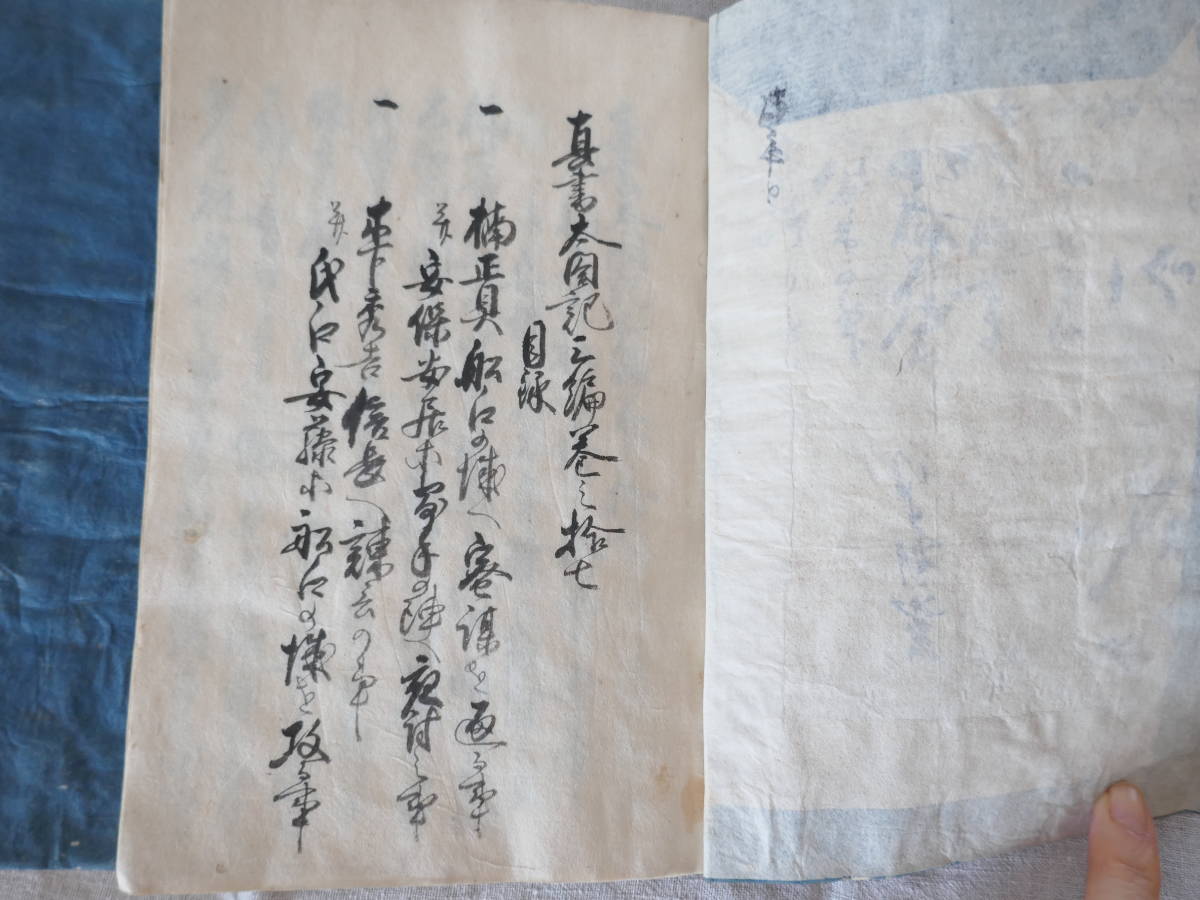 真書太閤記三編巻之拾七
目録
一 楠正具船江の城へ密謀を通る事
并 安保安居等寄手の陣へ夜討之事
一 木下秀吉信長へ諫言の事
并 氏江安藤等船江の城を攻る事